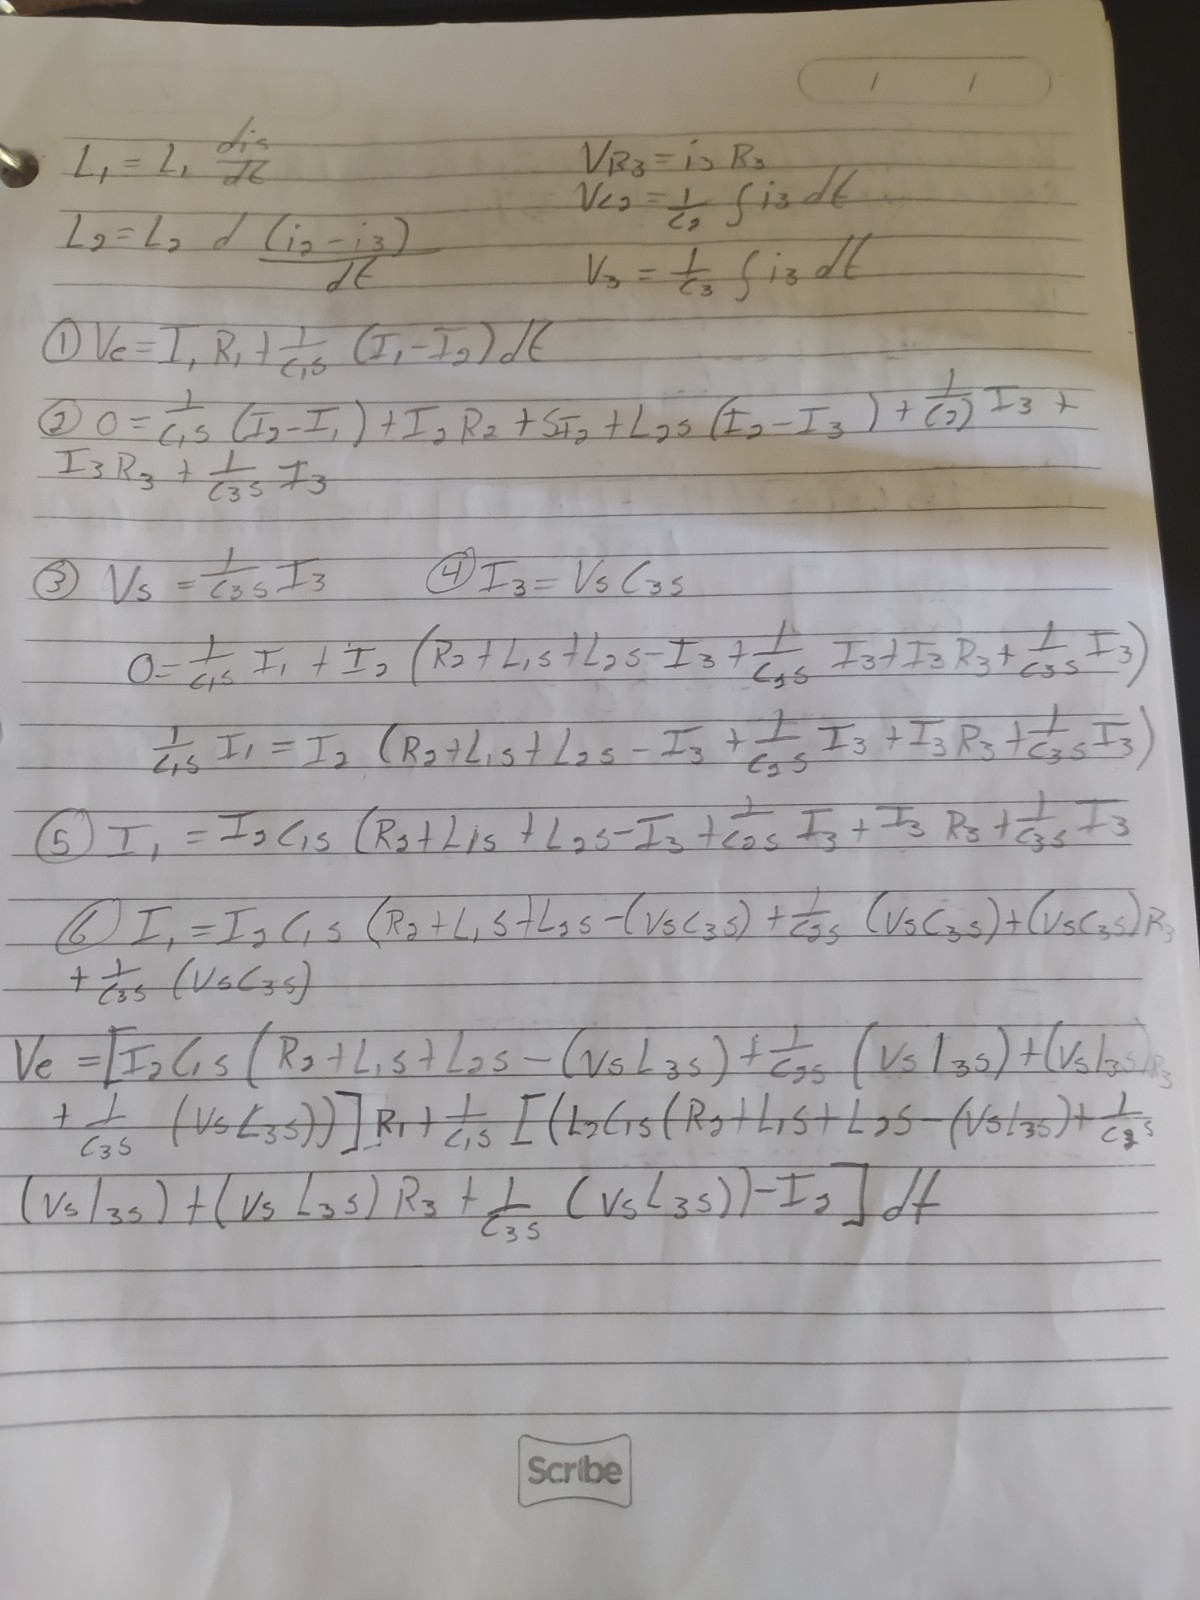 / /
L₁ = L₁ dis/dt
VR₃ = i₃ R₃
VC₂ = 1/C₂ ∫ i₃ dt
L₂ = L₂ d (i₂ - i₃)/dt
V₃ = 1/C₃ ∫ i₃ dt
① Ve = I₁ R₁ + 1/C₁s (I₁ - I₂) dt
② 0 = 1/C₁s (I₂ - I₁) + I₂ R₂ + SI₂ + L₂s (I₂ - I₃) + 1/C₂) I₃ +
I₃ R₃ + 1/C₃s I₃
③ Vs = 1/C₃s I₃ ④ I₃ = Vs C₃s
0 = 1/C₁s I₁ + I₂ (R₂ + L₁s + L₂s - I₃ + 1/C₂s I₃ + I₃ R₃ + 1/C₃s I₃)
1/C₁s I₁ = I₂ (R₂ + L₁s + L₂s - I₃ + 1/C₂s I₃ + I₃ R₃ + 1/C₃s I₃)
⑤ I₁ = I₂ C₁s (R₂ + L₁s + L₂s - I₃ + 1/C₂s I₃ + I₃ R₃ + 1/C₃s I₃
⑥ I₁ = I₂ C₁s (R₂ + L₁s + L₂s - (VsC₃s) + 1/C₂s (VsC₃s) + (VsC₃s) R₃
+ 1/C₃s (VsC₃s)
Ve = [I₂ C₁s (R₂ + L₁s + L₂s - (Vs L₃s) + 1/C₂s (Vs L₃s) + (Vs L₃s) R₃
+ 1/C₃s (Vs L₃s))] R₁ + 1/C₁s [(L₂C₁s (R₂ + L₁s + L₂s - (Vs L₃s) + 1/C₂s
(Vs L₃s) + (Vs L₃s) R₃ + 1/C₃s (Vs L₃s)) - I₂] dt
Scribe